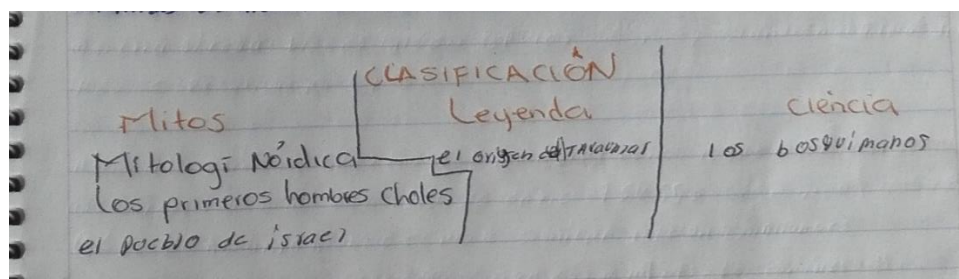 CLASIFICACIÓN
Mitos Leyenda Ciencia
Mitologi Nóidica el origen del los bosquimanos
los primeros hombres choles
el pueblo de israel